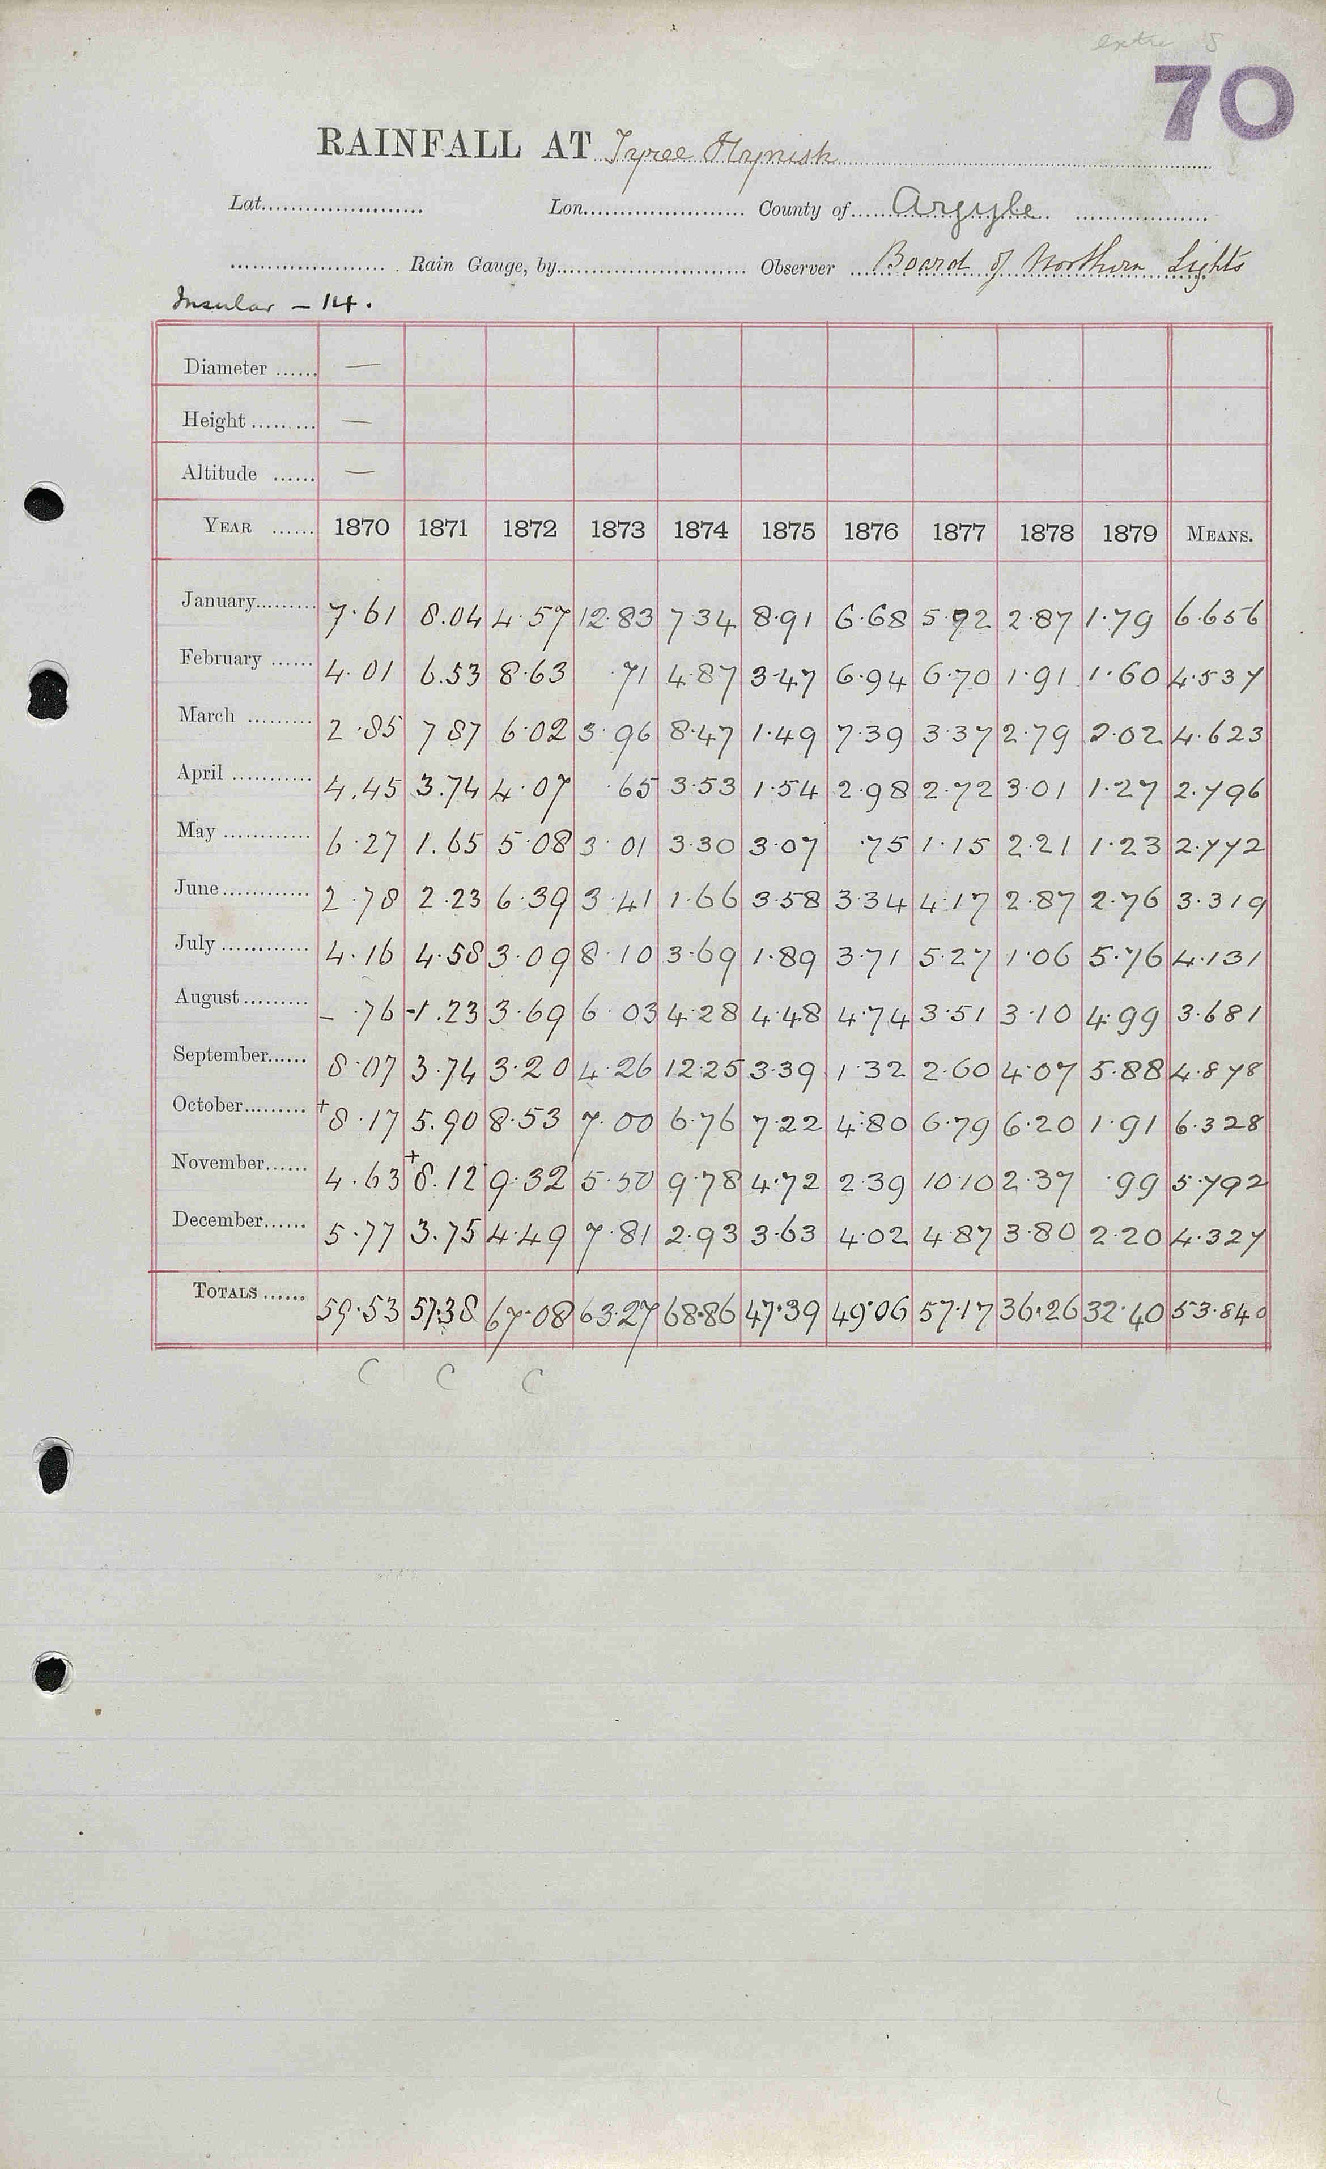 extre 8
70
RAINFALL AT Tyree Hynish
Lat. Lon. County of Argyle
Rain Gauge, by Observer Board of Northern Lights
Insular – 14.
Diameter —
Height —
Altitude —
YEAR 1870 1871 1872 1873 1874 1875 1876 1877 1878 1879 MEANS.
January 7.61 8.04 4.57 12.83 7.34 8.91 6.68 5.92 2.87 1.79 6.656
February 4.01 6.53 8.63 .71 4.87 3.47 6.94 6.70 1.91 1.60 4.537
March 2.85 7.87 6.02 3.96 8.47 1.49 7.39 3.37 2.79 2.02 4.623
April 4.45 3.74 4.07 .65 3.53 1.54 2.98 2.72 3.01 1.27 2.796
May 6.27 1.65 5.08 3.01 3.30 3.07 .75 1.15 2.21 1.23 2.772
June 2.78 2.23 6.39 3.41 1.66 3.58 3.34 4.17 2.87 2.76 3.319
July 4.16 4.58 3.09 8.10 3.69 1.89 3.71 5.27 1.06 5.76 4.131
August – .76 -1.23 3.69 6.03 4.28 4.48 4.74 3.51 3.10 4.99 3.681
September 8.07 3.74 3.20 4.26 12.25 3.39 1.32 2.60 4.07 5.88 4.878
October +8.17 5.90 8.53 7.00 6.76 7.22 4.80 6.79 6.20 1.91 6.328
November 4.63 +8.12 9.32 5.50 9.78 4.72 2.39 10.10 2.37 .99 5.792
December 5.77 3.75 4.49 7.81 2.93 3.63 4.02 4.87 3.80 2.20 4.327
TOTALS 59.53 57.38 67.08 63.27 68.86 47.39 49.06 57.17 36.26 32.40 53.840
C C C